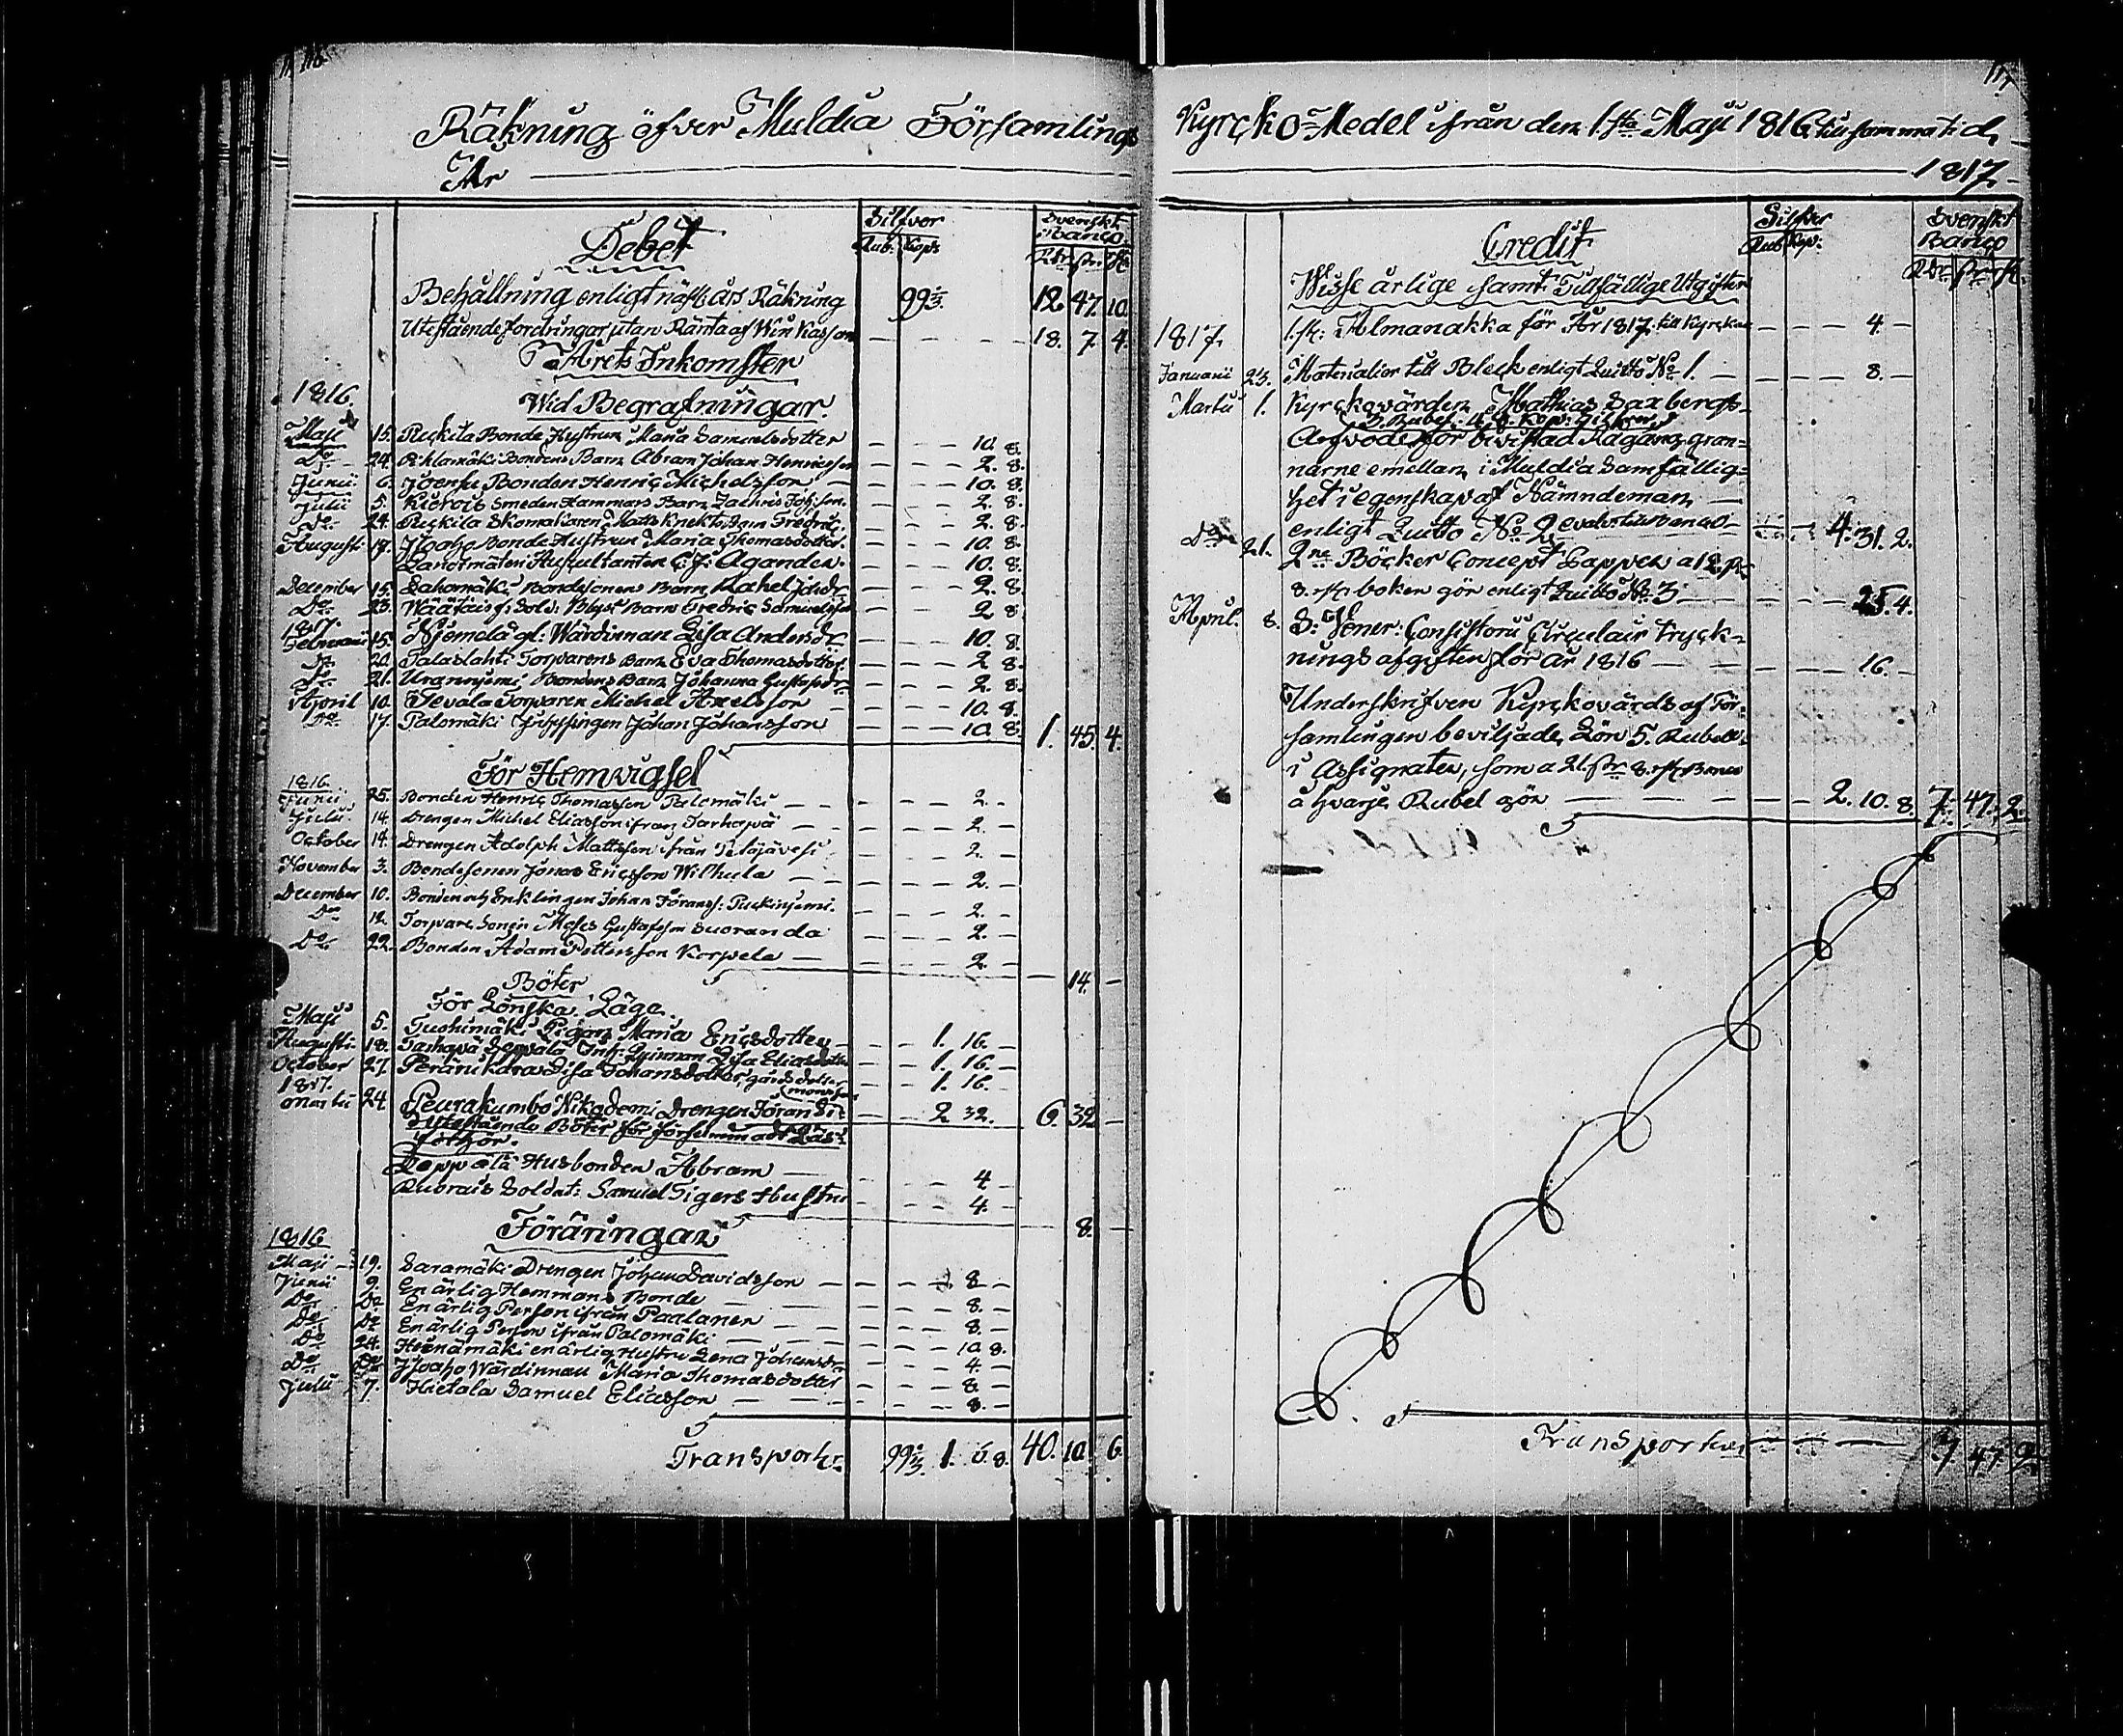 116
Räkning öfver Muldia Församlings
År
Debet
Silfver
Rub. Kop:
Svenskt Banco.
Rdr. sk. rst
Behållning enligt näst. års Räkning 99 2/3. 12 47. 10.
Utestående fordringar utan Ränta af Win Kassan — — — 18. 7. 4.
Årets Inkomster
1816. Wid Begrafningar.
Maji 15. Puckila Bonde Hustrun Maria Samuelsdotter — — — 10. 8.
Do 24. Bonden Barn Abram Johan Henricsson — — — 2. 8.
Junii 6. Bonden Henric Michelsson — — — 10. 8.
Julii 5. Smeden Hammars Barn — — — 2. 8.
Do 24. Puckila Skomakaren Matts Barn Fredric. — — — 2. 8.
Augusti 17. Isoaho Bonde Hustrun Maria Thomasdotter. — — — 10. 8.
Landtmäteri Auscultanten C. J: Agander. — — — 10. 8.
December 15. Lahomäki Bondesonens Barn Rahel — — — 2. 8.
Do 23. Sold: Barn Fredric — — — 2 8
1817.
Februarii 15. Niemelä gl: Wärdinnan Lisa Andersdr — — — 10. 8.
Do 20. Talaslahti Torparens Barn Eva Thomasdotter — — — 2 8.
Do 21. Bondens Barn Johanna Gustafsdr — — — 2. 8.
April 10. Torparen Michel Axelsson — — — 10. 8.
Do 17. Palomäki Johan Johansson — — — 10. 8. 1. 45. 4.
För Hemvigsel
1816.
Junii 25. Bonden Henric Thomasson Palomäki — — — 2. -
Julii 14. Drengen Michel Eliasson ifran Tarhapä — — — 2. -
October 14. Drengen Adolph Mattsson ifrån Petäjävesi — — — 2. -
November 3. Bondesonen Jonas Ericsson Wilhula — — — 2. -
December 10. Bonden och Enklingen Johan Göranss: — — — 2. -
Do 12. Torpare Sonen Moses Gustafsson Suoranda — — — 2. -
Do 22. Bonden Adam Pettersson Korpela — — — 2. -
— 14. —
Böter
För Lönska Läge.
Maji 5. Tuohimäki Pigan Maria Ericsdotter — — 1. 16. —
Augusti 18. Tarhapä Seppälä Inh: Qvinnan Lisa Eliasdotter — — 1. 16. —
October 27. Lisa Johansdotter, gårdsdotter — — 1. 16. —
1817.
Martii 24. Peurakumbo Nikodemi Drengen Göran — — 2 32. 6. 32 —
Utestående Böter för försummadt Läs-
förhör.
Seppälä Husbonden Abram — — — 4 -
Ruorais Soldat: Samuel Tigers Hustru — — — 4. -
8. —
1816 Föräringar
Maji 19. Saramäki Drengen Johan Davidsson — — — 8 —
Junii 9. En ärlig Hemmans Bonde — — — 8. —
Do Do En ärlig Person ifrån Paalanen — — — 8. —
Do Do En ärlig Person ifrån Palomäki — — — 10 8.
Do 24. Heinämäki en ärlig Hustru Lena Johansdr — — — 4. —
Do Do Isoaho Wärdinnan Maria Thomasdotter — — — 8. —
Julii 7. Hietala Samuel Eliasson — — — 8. —
Transport 99 2/3. 1. 6. 8. 40. 10. 6.
117
Kyrcko-Medel ifrån den 1sta Maji 1816 till samma tid
1817
Credit
Silfver
Rub. Kop:
Svenskt Banco
Rdr. sk. rst.
Wisse årlige samt Tillfällige Utgifter
1817. 1. st: Almanakka för År 1817 till Kyrckan — — — 4. —
Januarii 23. Materialier till Bleck enligt Quitto No 1. — — — 8. —
Martii 1. Kyrckovärden Mathias Saxbergs
3 Rubel Kop: Silfver
Arfvode för bevistad Rågång gran-
narne emellan i Muldia Samfällig-
het i egenskap af Nämndeman —
enligt Quitto No 2 — 4. 31. 2.
Do 21. 2ne Böcker Concept Papper a 12 sk
8. rst boken gör enligt Quitto No 3 — — 25. 4.
April. 8. D: Vener: Consistorii Circulair Tryck-
nings afgiften för år 1816 — — — 16. —
Underskrifven Kyrckovärds af För-
samlingen beviljade Lön 5. Rubel
i Assignater, som a 21. sk 8. rst Banco
a hvarje Rubel gör — — — 2. 10. 8. 7. 47. 2.
Transport — — — 7 47. 2